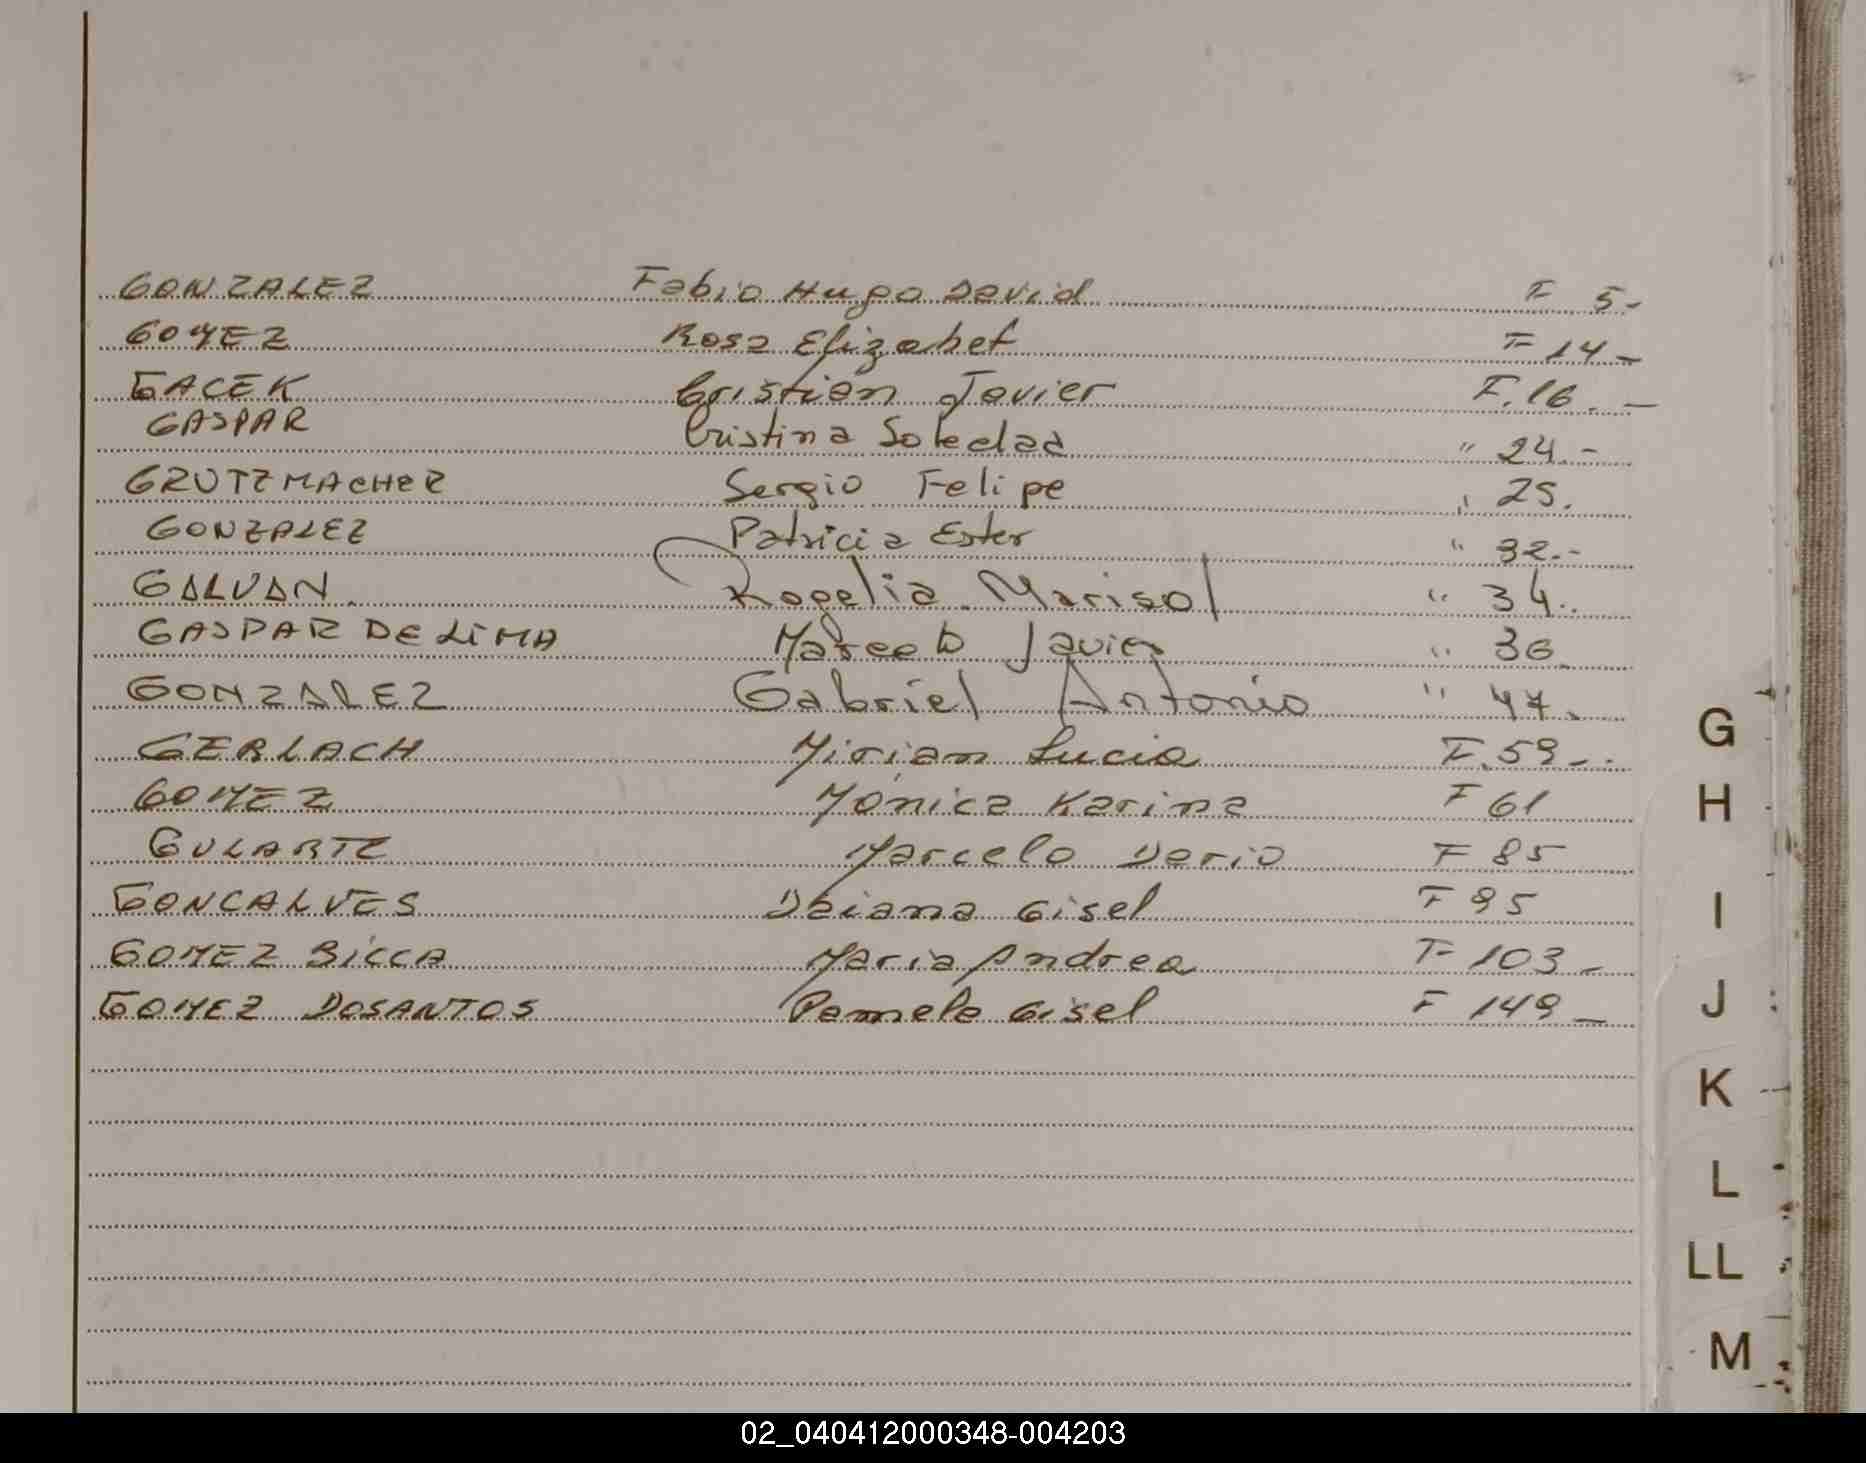 GONZALEZ Fabio Hugo David F 5-
GOMEZ Rosa Elizabet F 14-
GACEK Cristian Javier F. 16. -
GASPAR Cristina Soledad " 24.-
GRUTZMACHER Sergio Felipe " 25.
GONZALEZ Patricia Ester " 32.-
GALVAN. Rogelia Marisol " 34..
GASPAR DE LIMA Marcelo Javier " 36.
GONZALEZ Gabriel Antonio " 47.
GERLACH Miriam Lucia F. 59-.
GOMEZ Mónica Karina F 61
GULARTE Marcelo Dario F 85
GONCALVES Daiana Gisel F 95
GOMEZ BICCA Maria Andrea F 103-
GOMEZ DOSANTOS Pamela Gisel F 149-
G
H
I
J
K
L
LL
M
02_040412000348-004203